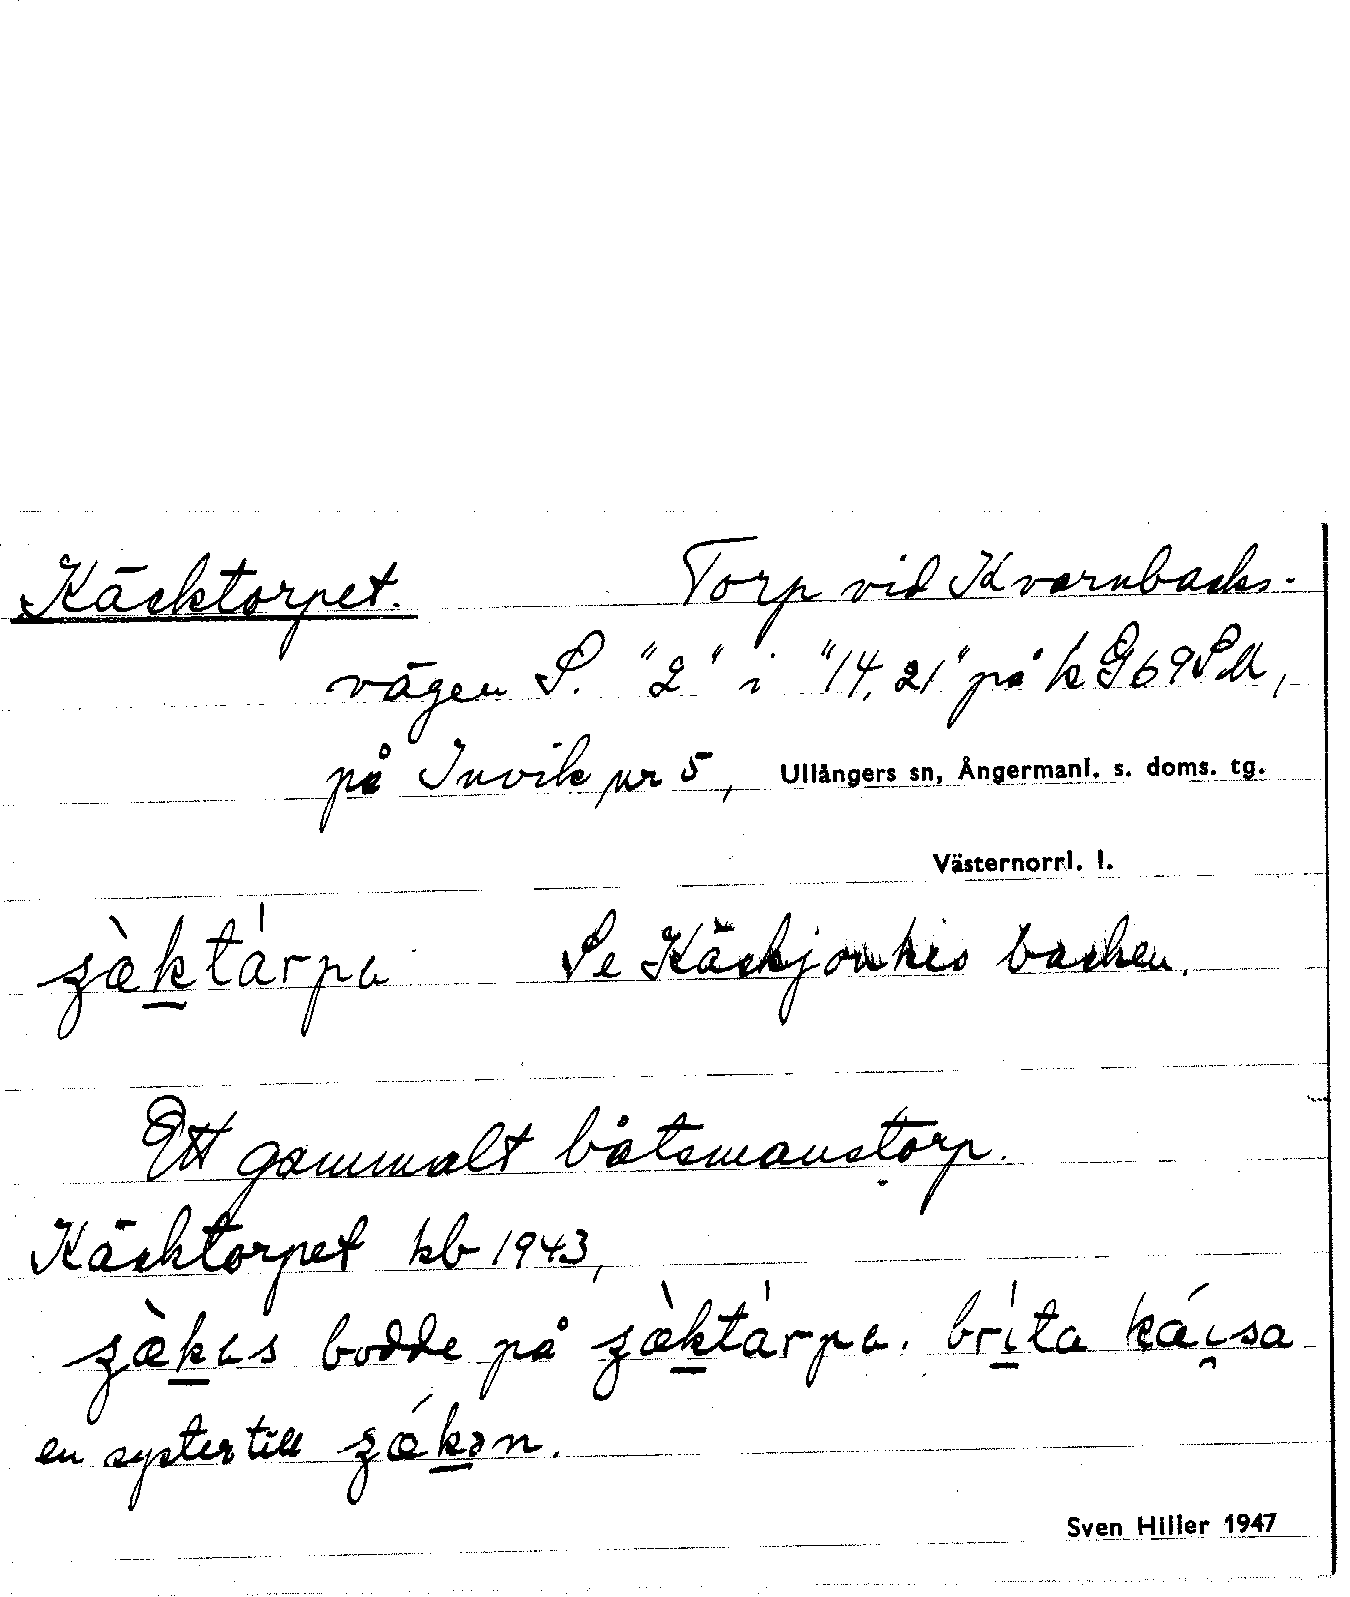 Käcktorpet. Torp vid Kvarnbacks-
vägen S. "2" i "14, 21" på k G69SM,
på Invik nr 5, Ullångers sn, Ångermanl. s. doms. tg.
Västernorrl. l.
ʒæ̀ktárpa Se Käckjonkes backen.
Ett gammalt båtsmanstorp.
Käcktorpet kb 1943,
ʒæ̀kas bodde på ʒæ̀ktárpa. bríta káisa
en syster till ʒǽkən.
Sven Hiller 1947